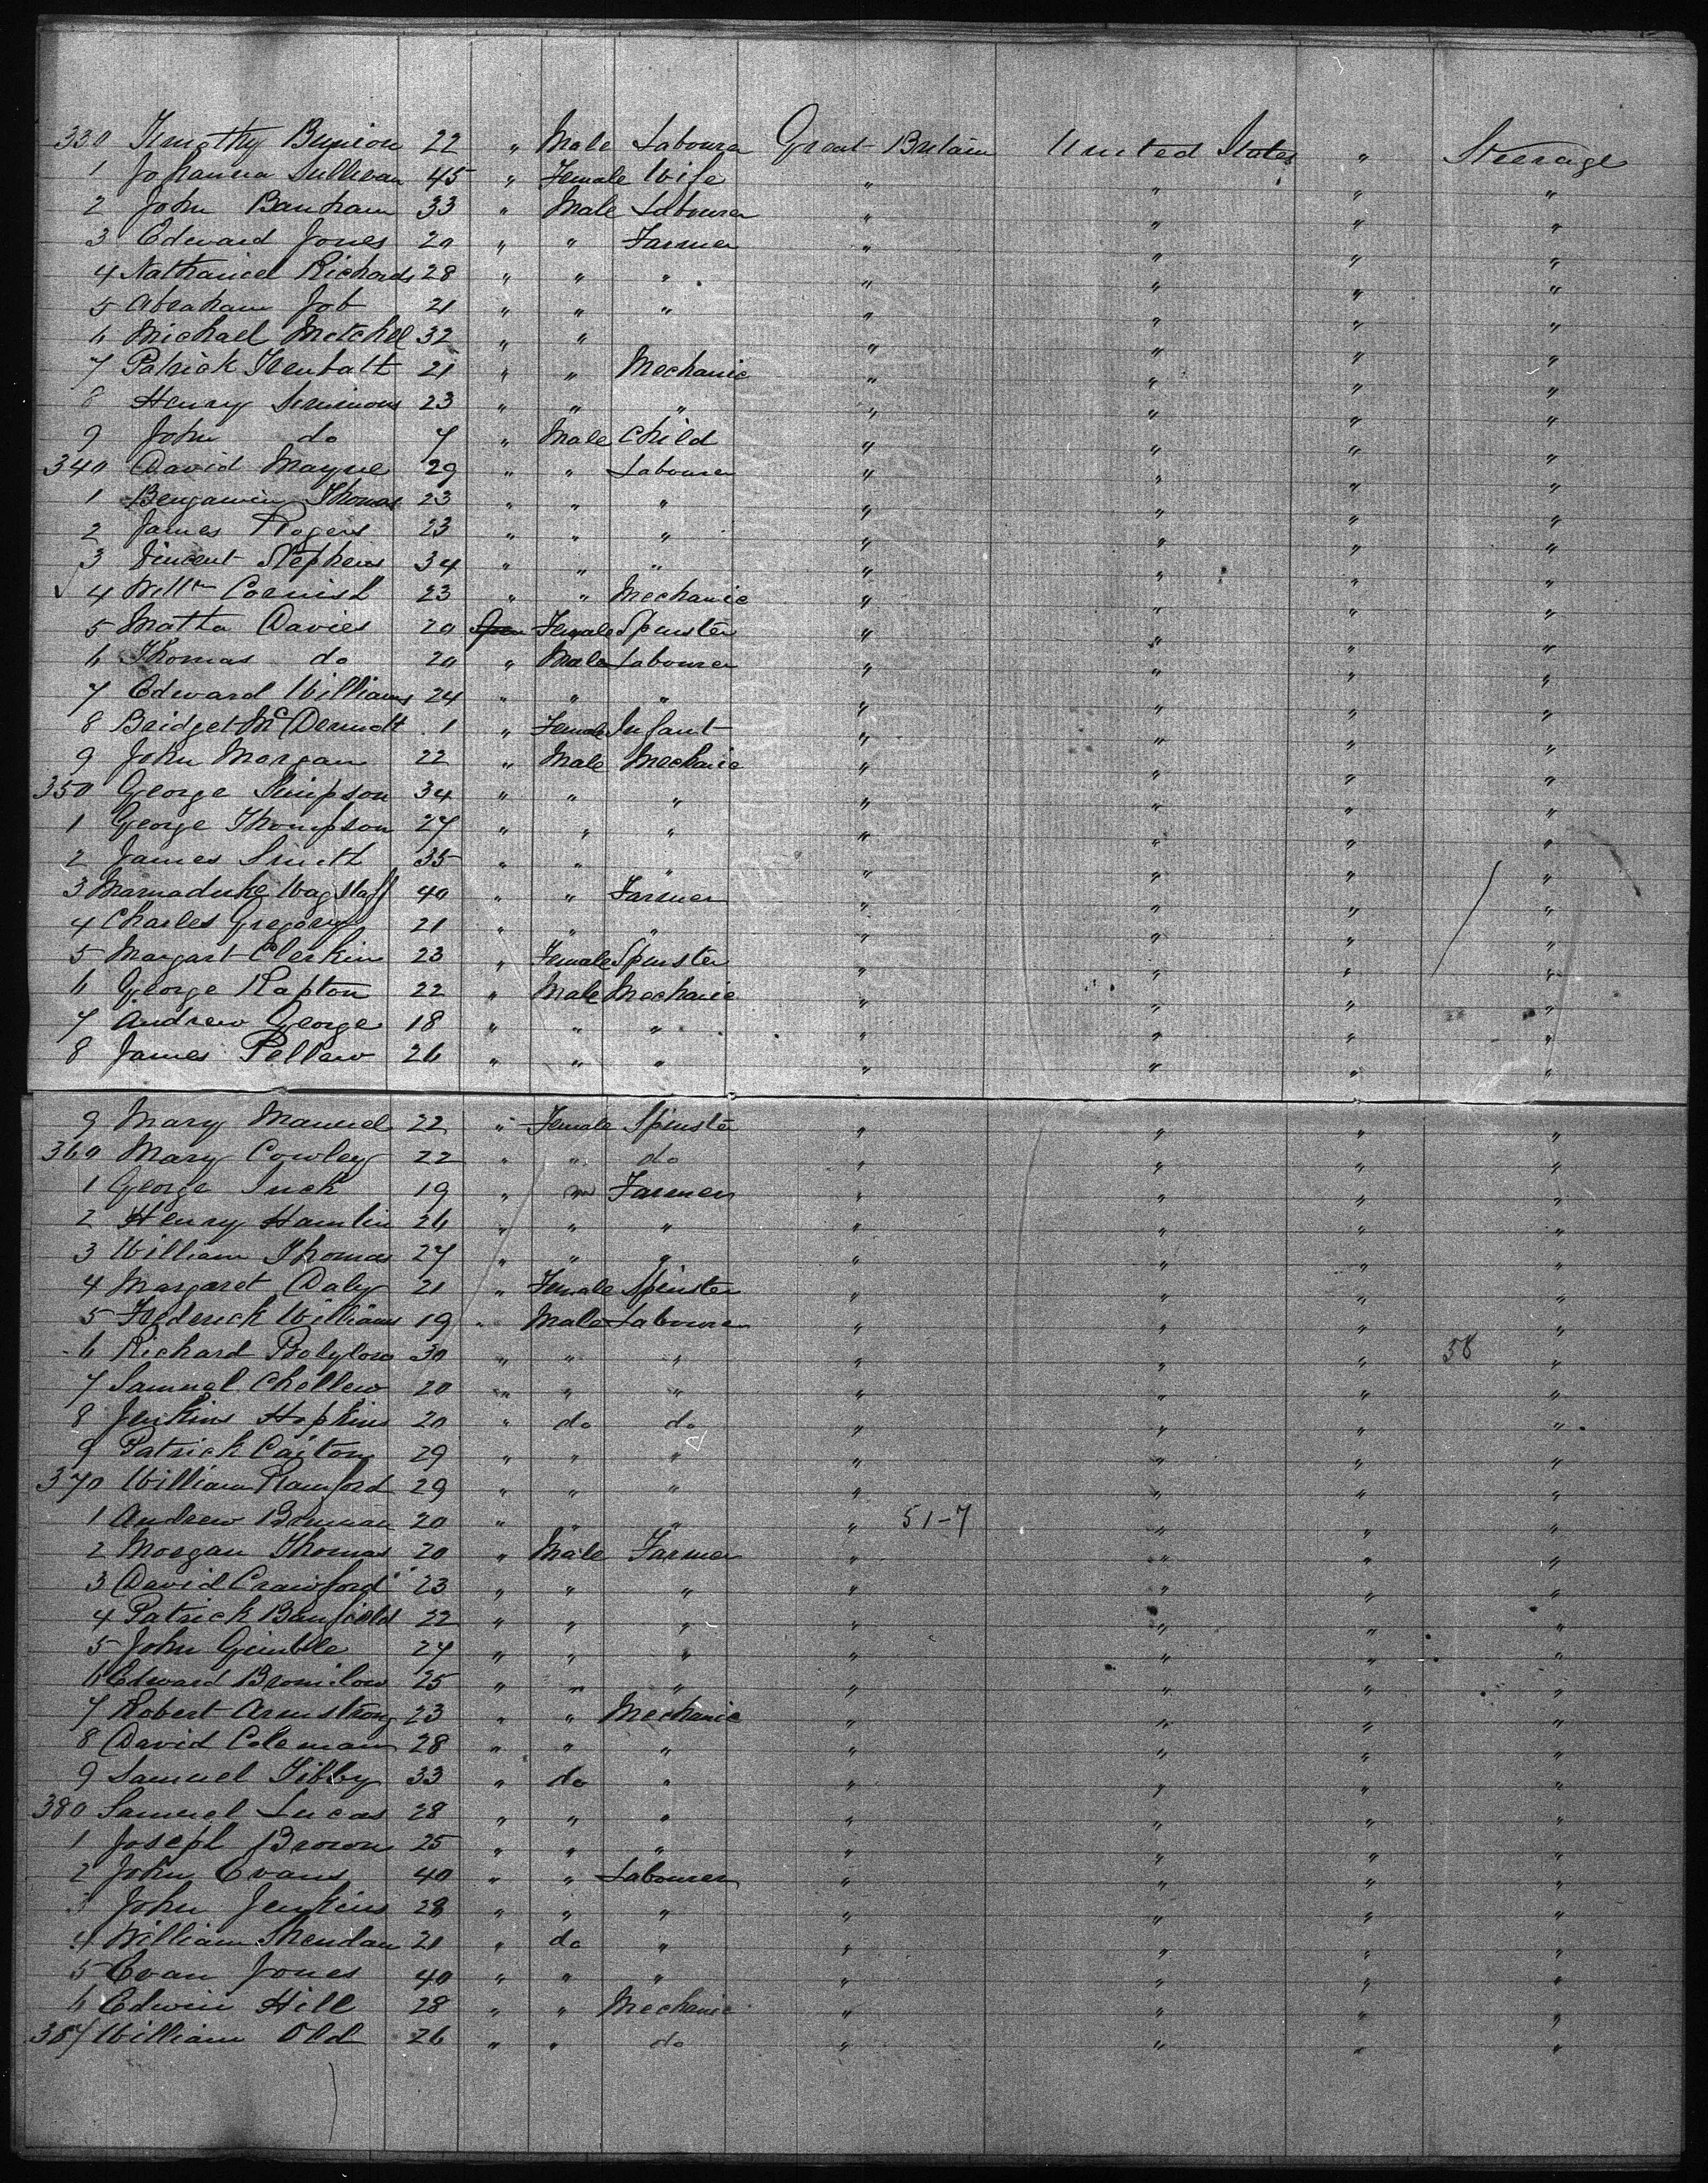 330 Timothy Bunion 22 " Male Labourer Great Britain United States " Steerage
1 Johanna Sullivan 45 " Female Wife " " " "
2 John Banham 33 " Male Labourer " " " "
3 Edward Jones 20 " " Farmer " " " "
4 Nathaniel Richards 28 " " " " " " "
5 Abraham Job 21 " " " " " " "
6 Michael Mitchell 32 " " " " " "
7 Patrick 21 " " Mechanic " " " "
8 Henry Simmons 23 " " " " " " "
9 John do 7 " Male Child " " " "
340 David Mayne 29 " " Labourer " " " "
1 Benjamin Thomas 23 " " " " " " "
2 James Rogers 23 " " " " " " "
3 Vincent Stephens 34 " " " " " " "
4 Willm Cornish 23 " " Mechanic " " " "
5 Matha Davies 20 Female Spinster " " " "
6 Thomas do 20 " Male Labourer " " " "
7 Edward Williams 24 " " " " " " "
8 Bridget McDermott 1 " Female Infant " " " "
9 John Morgan 22 " Male Mechanic " " " "
350 George Simpson 34 " " " " " " "
1 George Thompson 27 " " " " " " "
2 James Smith 35 " " " " " " "
3 Marmaduke Wagstaff 40 " " Farmer " " " "
4 Charles Gregory 21 " " " " " " "
5 Margart Clerkin 23 " Female Spinster " " " "
6 George Rapton 22 " Male Mechanic " " " "
7 Andrew George 18 " " " " " " "
8 James Pellew 26 " " " " " " "
9 Mary Manuel 22 " Female Spinster " " " "
360 Mary Cowley 22 " " do " " " "
1 George 19 " m Farmer " " " "
2 Henry Hamlin 26 " " " " " " "
3 William Thomas 27 " " " " " " "
4 Margaret Daly 21 " Female Spinster " " " "
5 Frederick Williams 19 " Male Labourer " " " "
6 Richard 30 " " " " " " 58 "
7 Samuel Chellew 20 " " " " " " "
8 Jenkins Hopkins 20 " do do " " " "
9 Patrick 29 " " " " " " "
370 William 29 " " " " " " "
1 Andrew 20 " " " " 51-7 " " "
2 Morgan Thomas 20 " Male Farmer " " " "
3 David Crawford 23 " " " " " " "
4 Patrick Banfield 22 " " " " " " "
5 John Gimble 27 " " " " " " "
6 Edward Bromilow 25 " " " " " " "
7 Robert Armstrong 23 " " Mechanic " " " "
8 David Coleman 28 " " " " " " "
9 Samuel Tibby 33 " do " " " " "
380 Samuel Lucas 28 " " " " " " "
1 Joseph Brown 25 " " " " " " "
2 John Evans 40 " " Labourer " " " "
3 John Jenkins 28 " " " " " " "
4 William Sheridan 21 " do " " " " "
5 Evan Jones 40 " " " " " " "
6 Edwin Hill 28 " " Mechanic " " " "
387 William Old 26 " " do " " " "